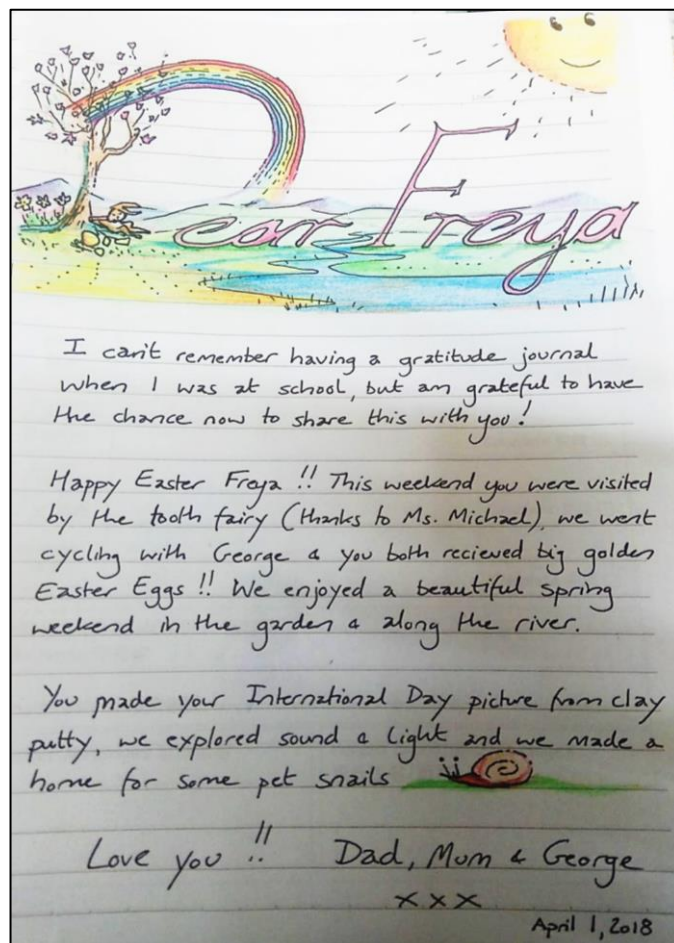 Dear Freya
I can't remember having a gratitude journal
when I was at school, but am grateful to have
the chance now to share this with you!
Happy Easter Freya!! This weekend you were visited
by the tooth fairy (thanks to Ms. Michael), we went
cycling with George & you both recieved big golden
Easter Eggs!! We enjoyed a beautiful spring
weekend in the garden & along the river.
You made your International Day picture from clay
putty, we explored sound & light and we made a
home for some pet snails
Love you!! Dad, Mum & George
xxx
April 1, 2018